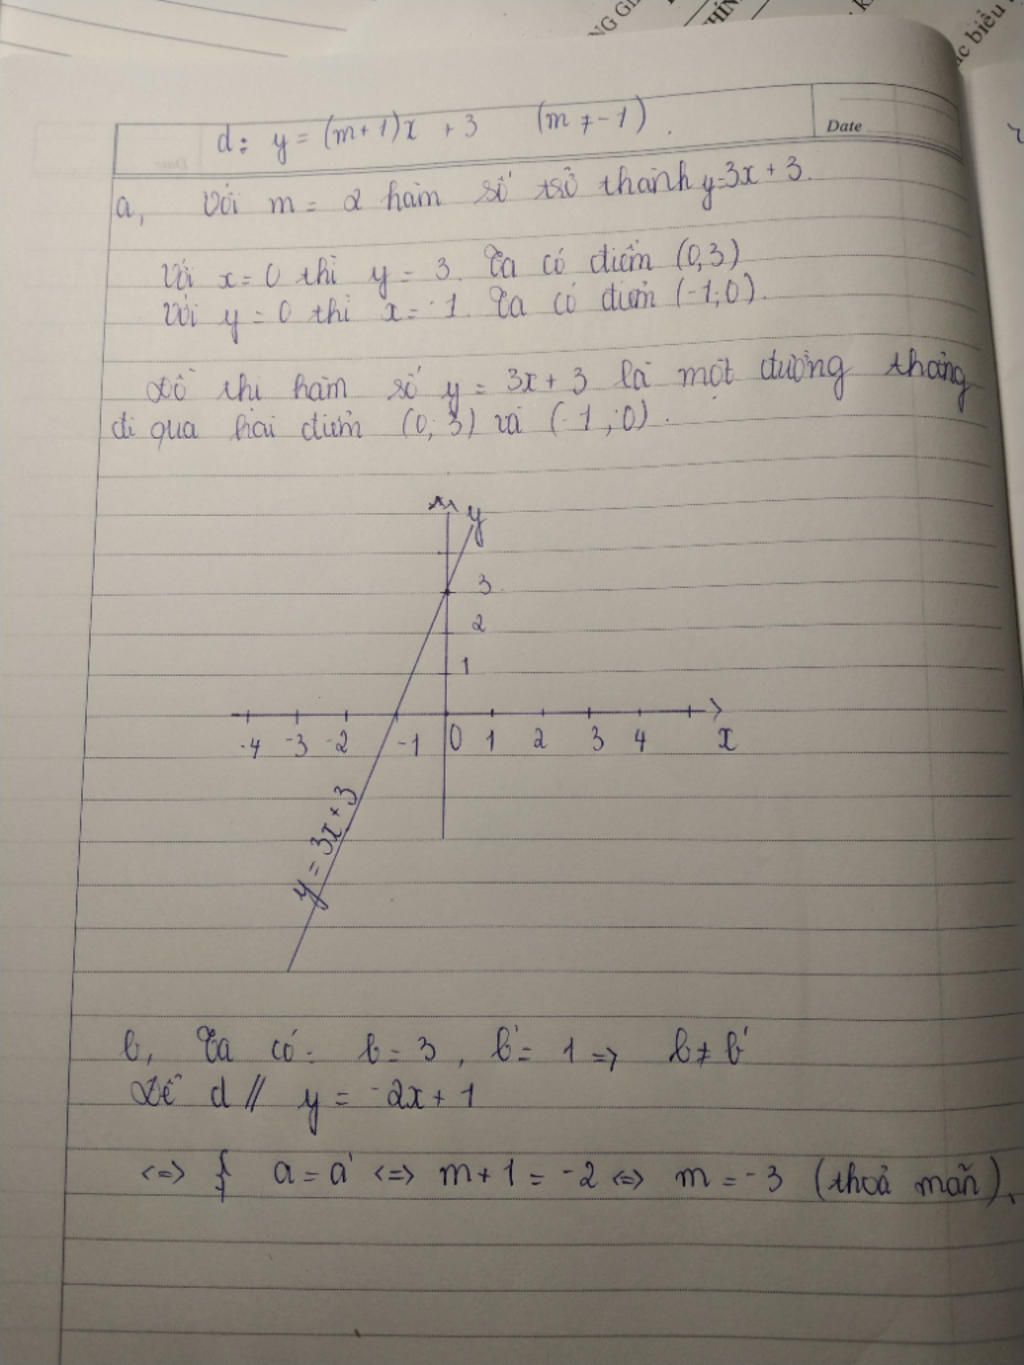 NG GI
HÍN
ác biểu
Date
d: y = (m+1)x + 3 (m ≠ -1).
a, Với m = 2 hàm số trở thành y=3x+3.
Với x=0 thì y = 3. Ta có điểm (0,3)
Với y = 0 thì x = -1. Ta có điểm (-1;0).
Đồ thi hàm số y = 3x + 3 là một đường thẳng
đi qua hai điểm (0; 3) và (-1; 0).
y
3
2
1
-4 -3 -2 -1 0 1 2 3 4 x
y = 3x+3
b, Ta có: b = 3, b' = 1 => b ≠ b'
Để d // y = -2x + 1
<=> { a = a' <=> m+1 = -2 <=> m = -3 (thoả mãn).